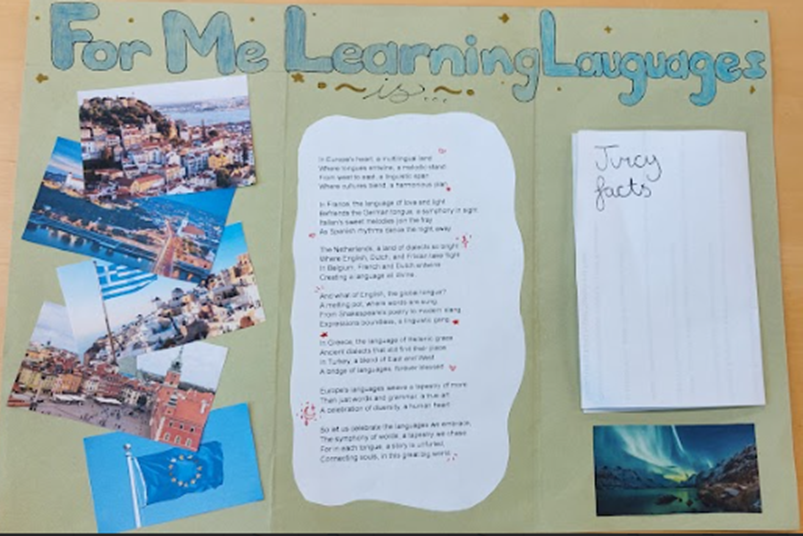 For Me Learning Lauguages
is...
In Europe's heart, a multilingual land
Where tongues entwine, a melodic stand
From west to east, a linguistic span
Where cultures blend, a harmonious plan
In France, the language of love and light
Befriends the German tongue, a symphony in sight
Italian's sweet melodies join the fray
As Spanish rhythms dance the night away
The Netherlands, a land of dialects so bright
Where English, Dutch, and Frisian take flight
In Belgium, French and Dutch entwine
Creating a language so divine
And what of English, the global tongue?
A melting pot, where words are sung
From Shakespeare's poetry to modern slang
Expressions boundless, a linguistic gang
In Greece, the language of Hellenic grace
Ancient dialects that still find their place
In Turkey, a blend of East and West
A bridge of languages, forever blessed
Europe's languages weave a tapestry of more
Than just words and grammar, a true art
A celebration of diversity, a human heart
So let us celebrate the languages we embrace,
The symphony of words, a tapestry we chase
For in each tongue, a story is unfurled,
Connecting souls, in this great big world
Juicy
facts